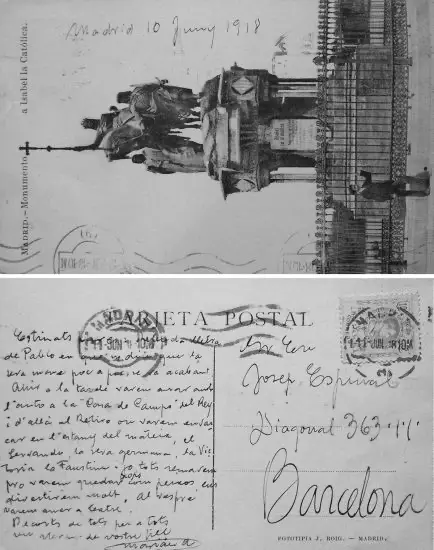 Madrid 10 Juny 1918
MADRID.–Monumento
a Isabel la Católica.
TARJETA POSTAL
MADRID
11 JUN 18 10M
MADRID
11 JUN 18 10M
Estimats
de Pablo en que
seva mare poc a poc se va acabant
Ahir a la tarde varem anar amb
l'auto a la "Casa de Campo" del Rey
i d'allà al Retiro on varem
car en l'estany del mateix, el
Fernando, la seva germana, la Vic
toria la Faustina i jo tots remarem
pro varem quedar com peixos ens
divertirem molt. Al vespre
varem anar a teatre.
Records de tots per a tots
de vostre fill
Mariano
Josep Espinal
Diagonal 363
Barcelona
FOTOTIPIA J. ROIG. – MADRID.